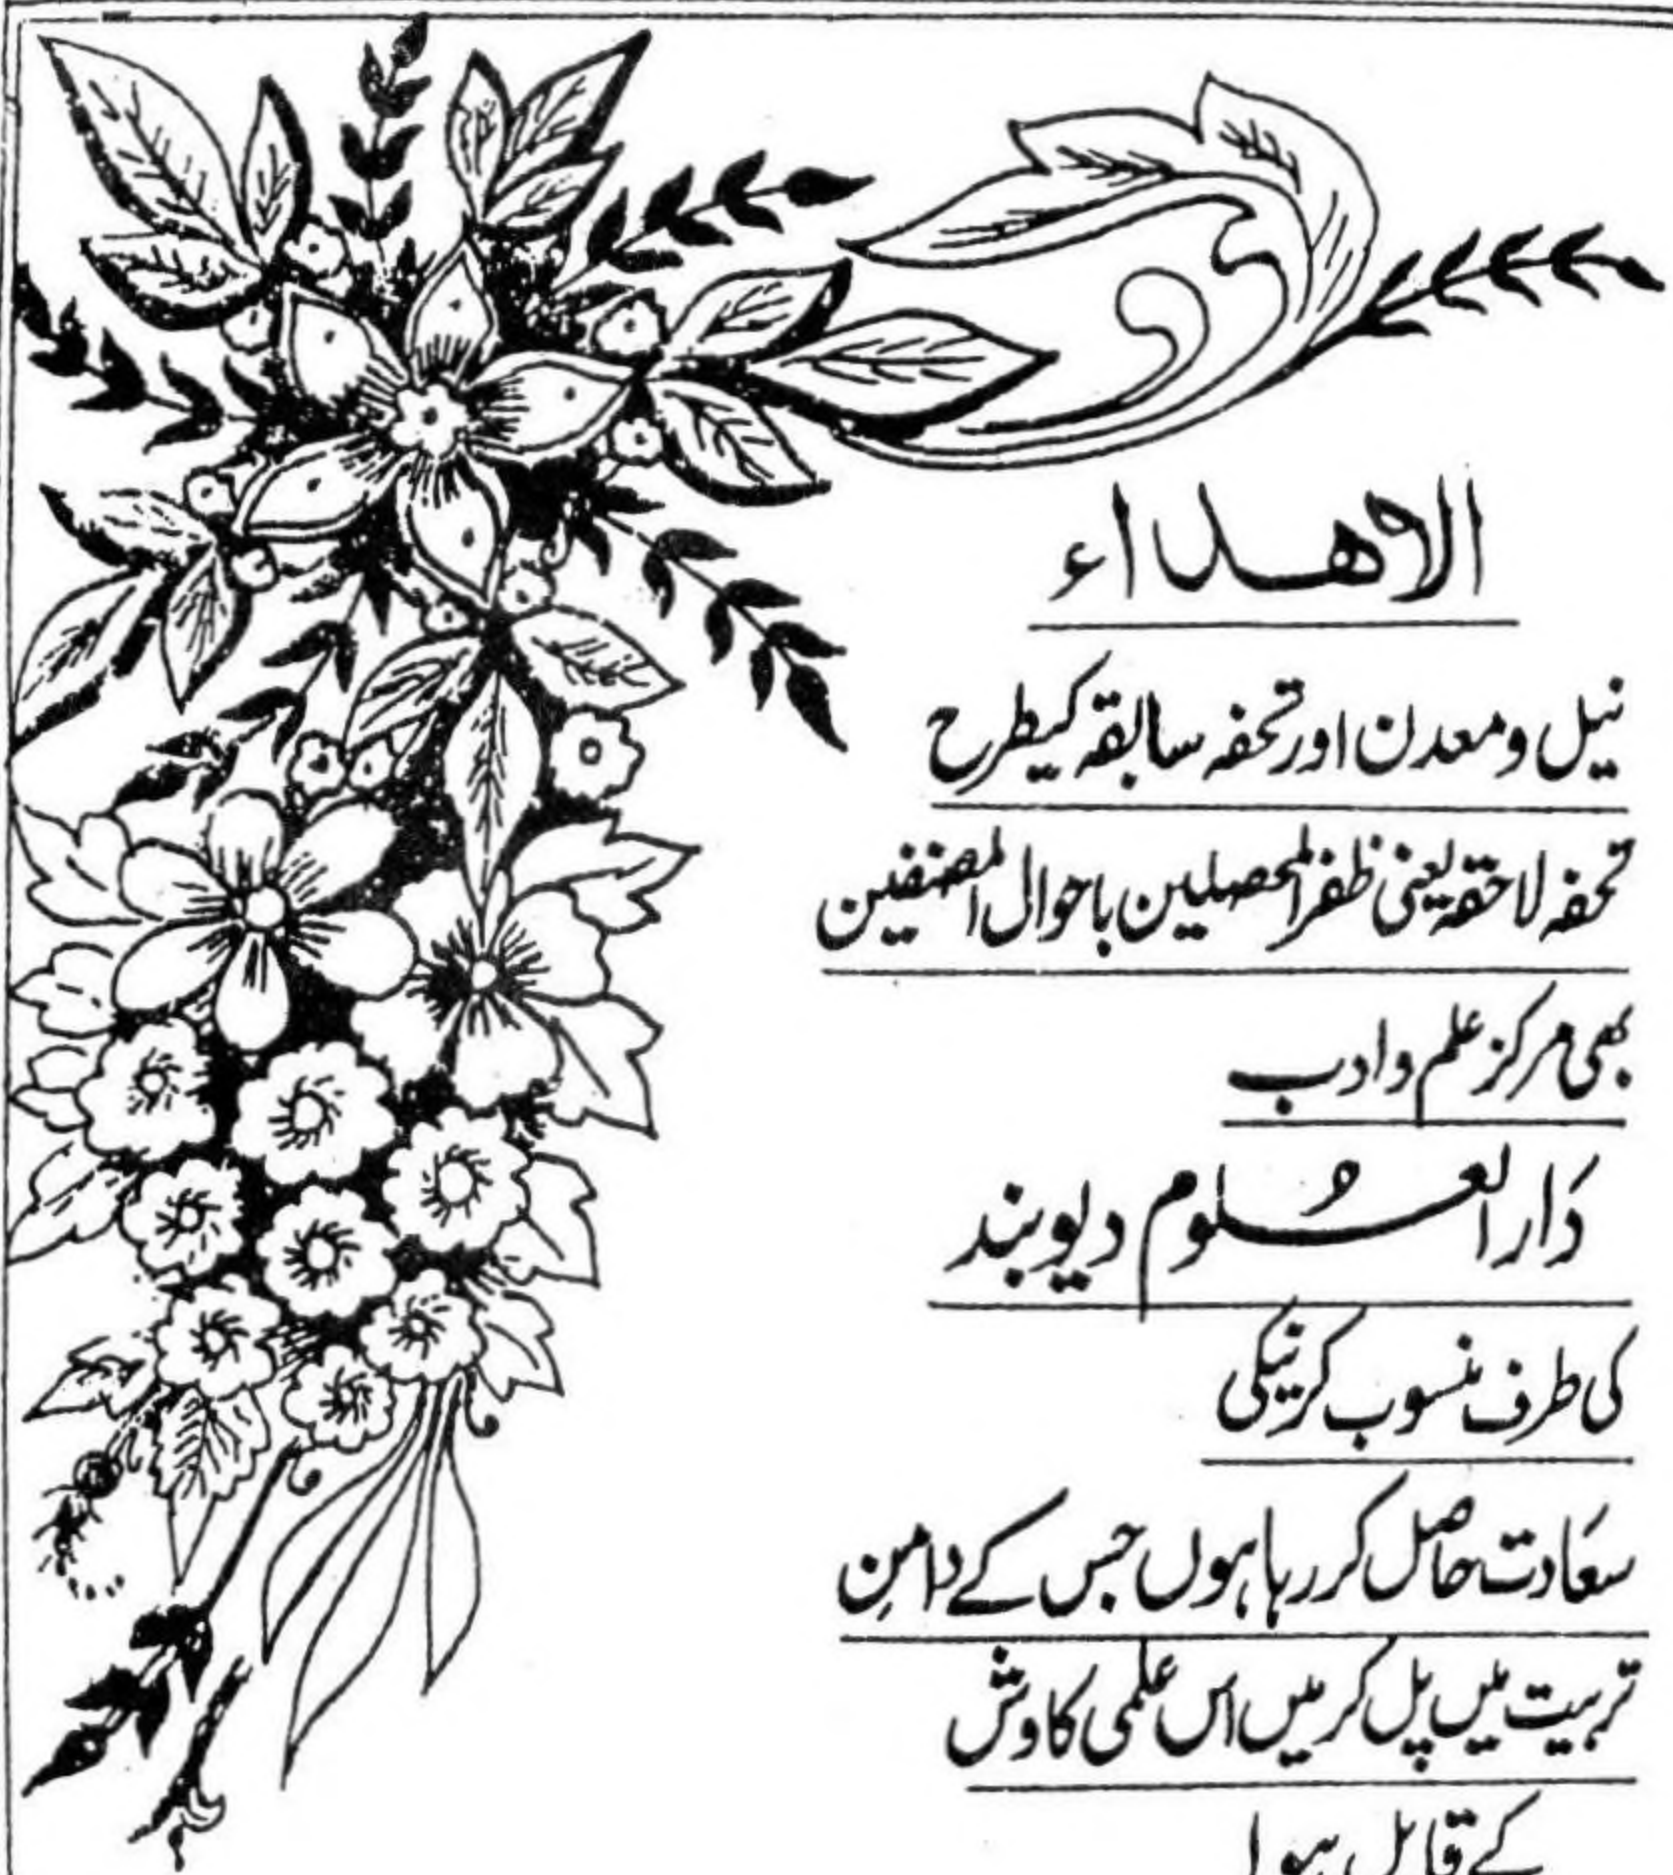 الاهداء
نیل و معدن اور تحفہ سابقہ کیطرح
تحفہ لاحقہ یعنی ظفر المحصلین باحوال المصنفین
بھی مرکز علم و ادب
دَار العُلوم دیوبند
کی طرف منسوب کرنیکی
سعَادت حاصل کر رہا ہوں جس کے دامنِ
تربیت میں پل کر میں اس علمی کاوش
کے قابل ہوا